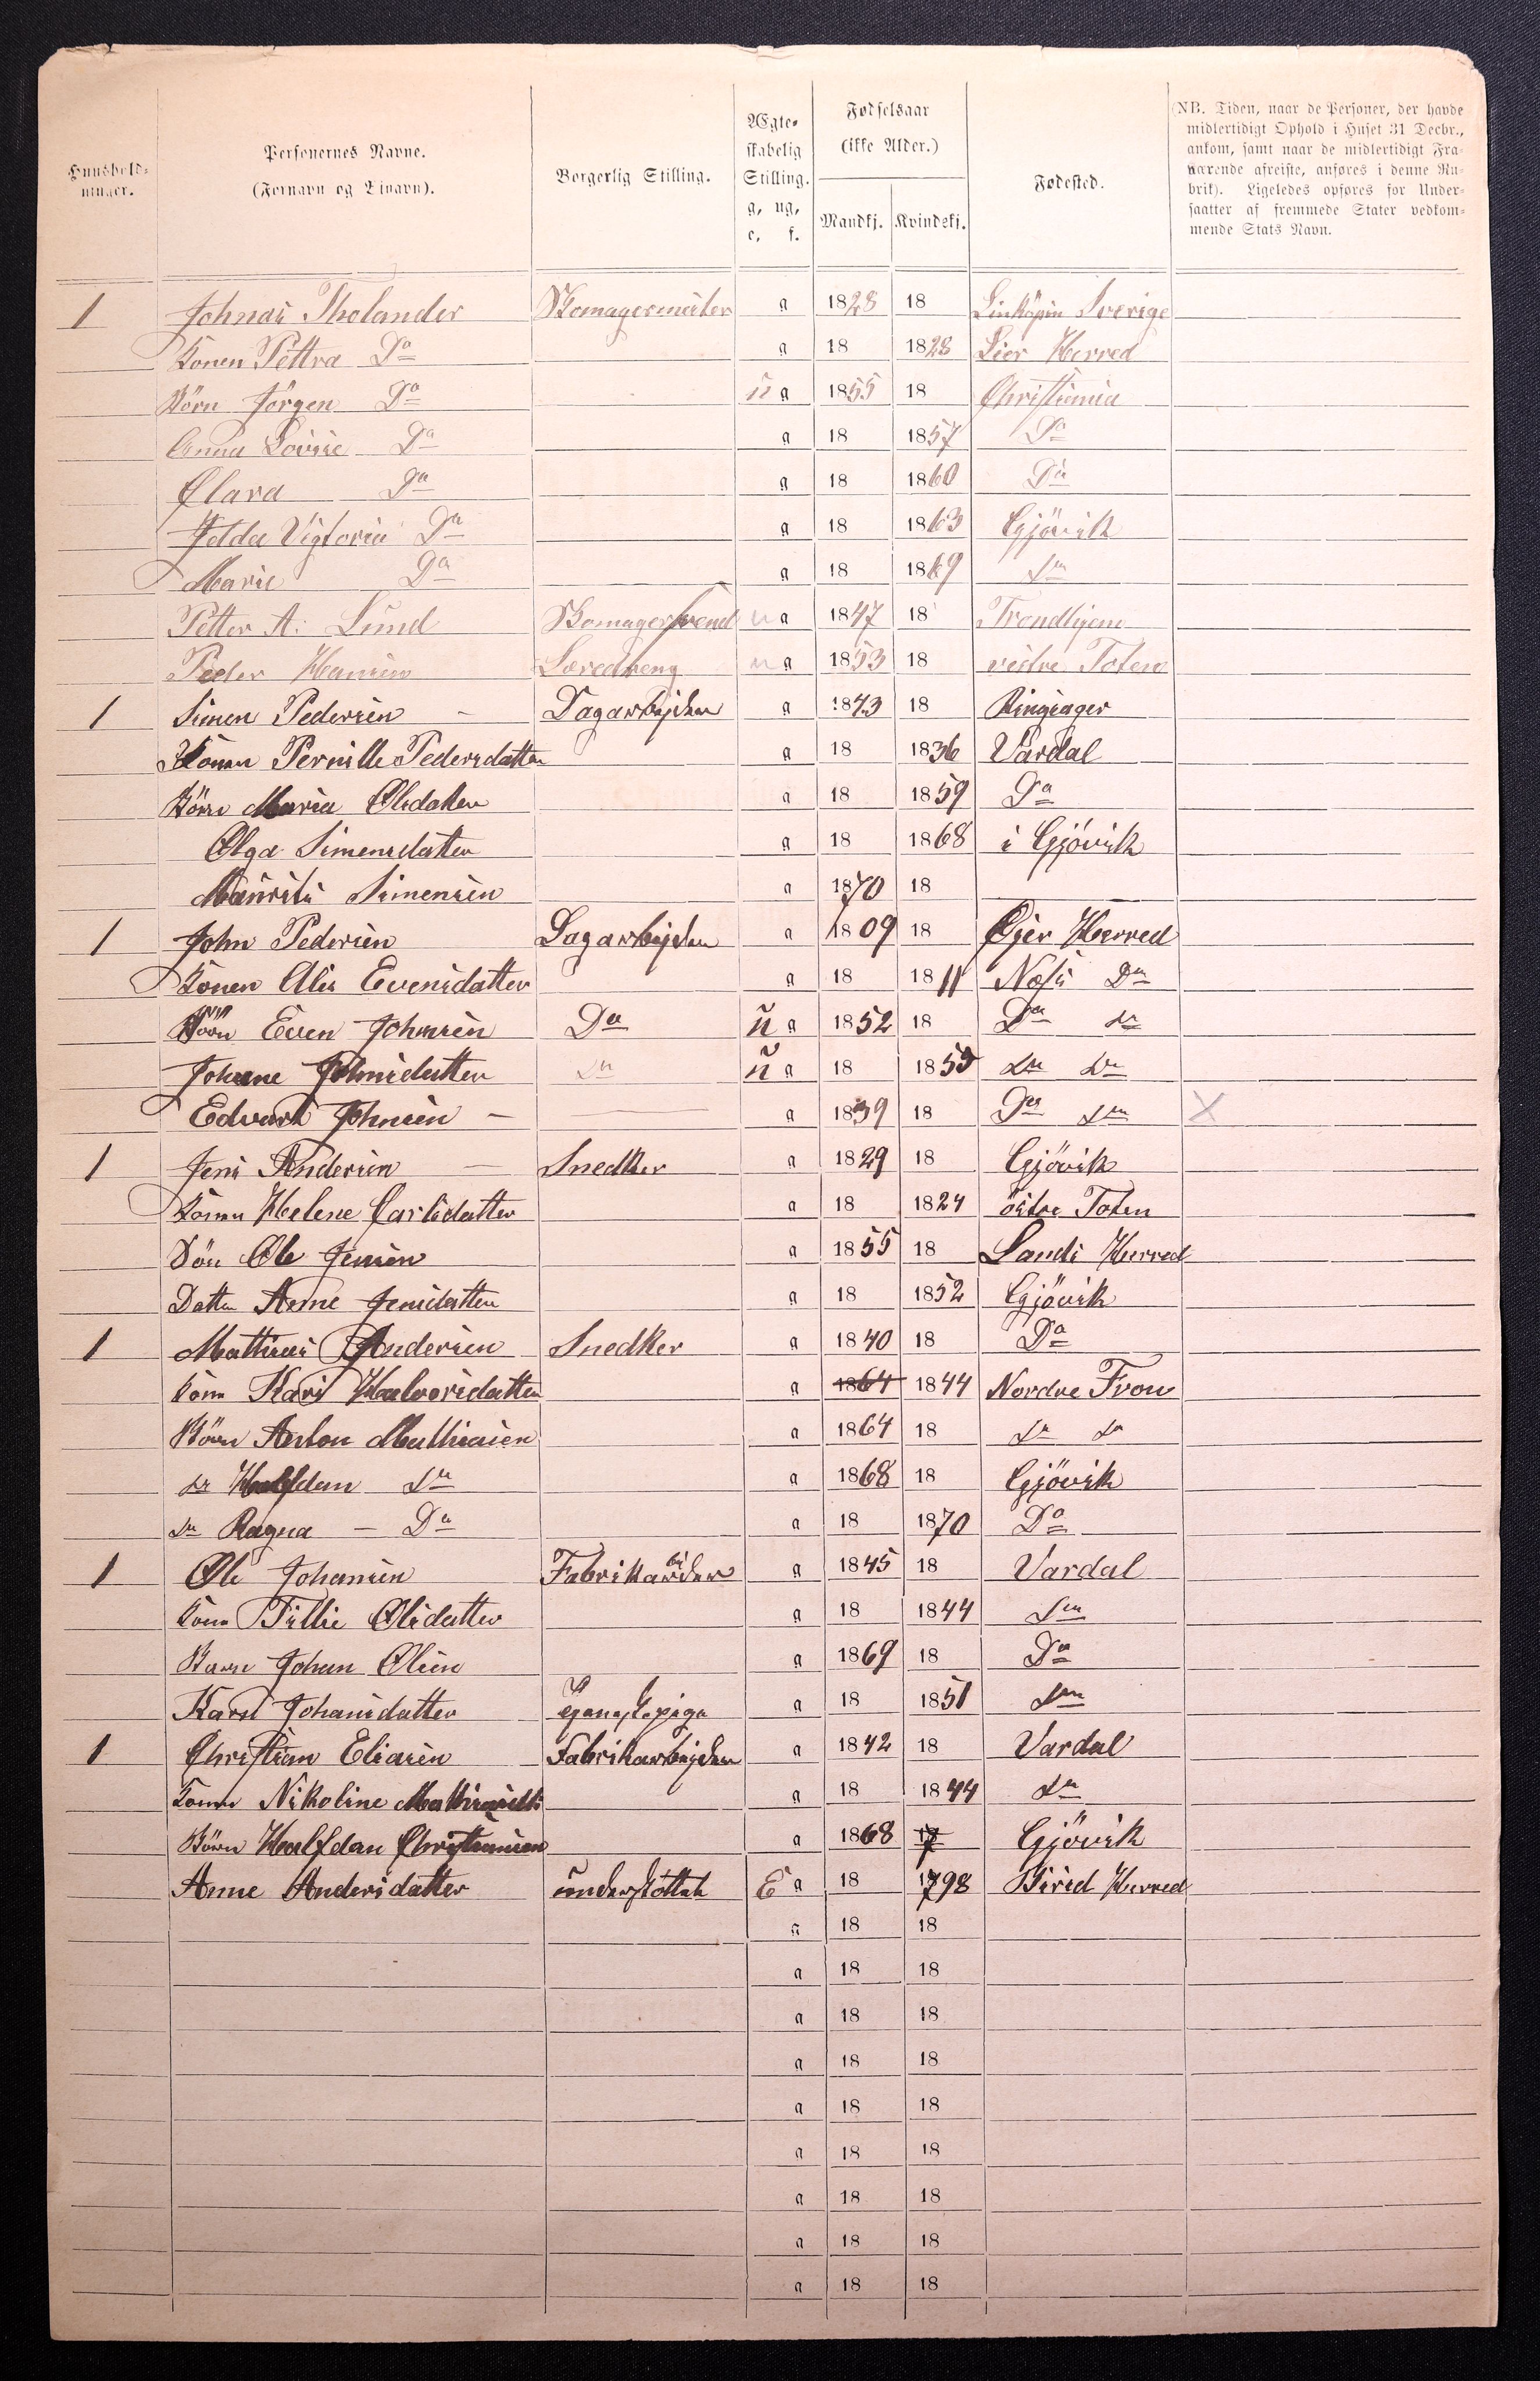 Huushold-
ninger.
Personernes Navne.
(Fornavn og Tilnavn).
Borgerlig Stilling.
Ægte-
skabelig
Stilling.
g, ug,
e, f.
Fødselsaar
(ikke Alder.)
Mandkj. Kvindekj.
Fødested.
(NB. Tiden, naar de Personer, der havde
midlertidigt Ophold i Huset 31 Decbr.,
ankom, samt naar de midlertidigt Fra-
værende afreiste, anføres i denne Ru-
brik). Ligeledes opføres for Under-
saatter af fremmede Stater vedkom-
mende Stats Navn.
1 Johnas Tholander Skomagermester g 1828 18 Linköpin Sverige
Konen Pettra Do g 18 1828 Lier Herred
Börn Jörgen Do u g 1855 18 Christiania
Anna Lovise Do g 18 1857 Do
Clara Do g 18 1860 Do
Helda Vigtoria Do g 18 1863 Gjövik
Marie Do g 18 1869 Do
Petter A. Lund Skomagersvend u g 1847 18 Trondhjem
Peder Hansen Læredreng u g 1853 18 vestre Toten
1 Simen Pedersen Dagarbejder g 1843 18 Ringsager
Konen Pernille Pedersdatter g 18 1836 Vardal
Börn Maria Olsdatter g 18 1859 Do
Olga Simensdatter g 18 1868 i Gjövik
Mauritz Simensen g 1870 18
1 John Pedersen Dagarbejder g 1809 18 Øjer Herred
Konen Alis Evensdatter g 18 1811 Næss Do
Börn Even Johnsen Do u g 1852 18 Do Do
Johane Johnsdatter Do u g 18 1855 Do Do
Edvart Johnsen g 1839 18 Do Do X
1 Jens Andersen Snedker g 1829 18 Gjövik
Konen Helene Carlsdatter g 18 1824 östre Toten
Sön Ole Jensen g 1855 18 Lands Herred
Datter Anne Jensdatter g 18 1852 Gjövik
1 Mathias Andersen Snedker g 1840 18 Do
Konen Kari Halvorsdatter g 1864 1844 Nordre Fron
Börn Anton Mathiasen g 1864 18 Do Do
Do Halfdan Do g 1868 18 Gjövik
Do Ragna Do g 18 1870 Do
1 Ole Johansen Fabrikarbeider g 1845 18 Vardal
Kone Tillie Olsdatter g 18 1844 Do
Barn Johan Olsen g 1869 18 Do
Kari Johansdatter tjenestepige g 18 1851 Do
1 Christian Eliasen Fabrikarbejder g 1842 18 Vardal
Konen Nikoline Mathiasdtt g 18 1844 Do
Börn Halfdan Christiansen g 1868 18 Gjövik
Anne Andersdatter understöttet E g 18 1798 Birid Herred
g 18 18
g 18 18
g 18 18
g 18 18
g 18 18
g 18 18
g 18 18
g 18 18
g 18 18